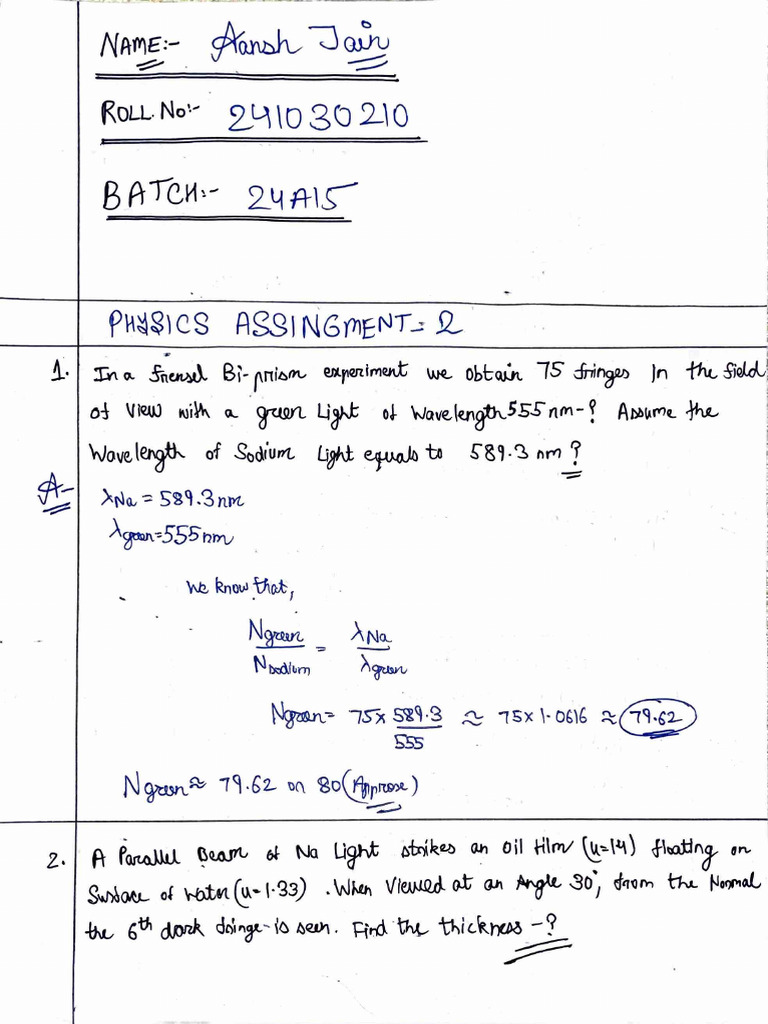 NAME:- Aansh Jain
ROLL.No:- 241030210
BATCH:- 24A15
PHYSICS ASSINGMENT-2
1. In a frensel Bi-prism experiment we obtain 75 fringes In the field
of view with a green Light of wavelength 555 nm-? Assume the
Wavelength of Sodium Light equals to 589.3 nm?
A-
λNa = 589.3nm
λgreen=555nm
We know that,
Ngreen/Nsodium = λNa/λgreen
Ngreen= 75x 589.3/555 ≈ 75x1.0616 ≈ 79.62
Ngreen≈ 79.62 or 80(Approxe)
2. A Parallel Beam of Na Light strikes an oil film (u=14) floating on
Surface of water (u=1.33). When Viewed at an Angle 30°, from the Normal
the 6th dark fringe is seen. Find the thickness -?